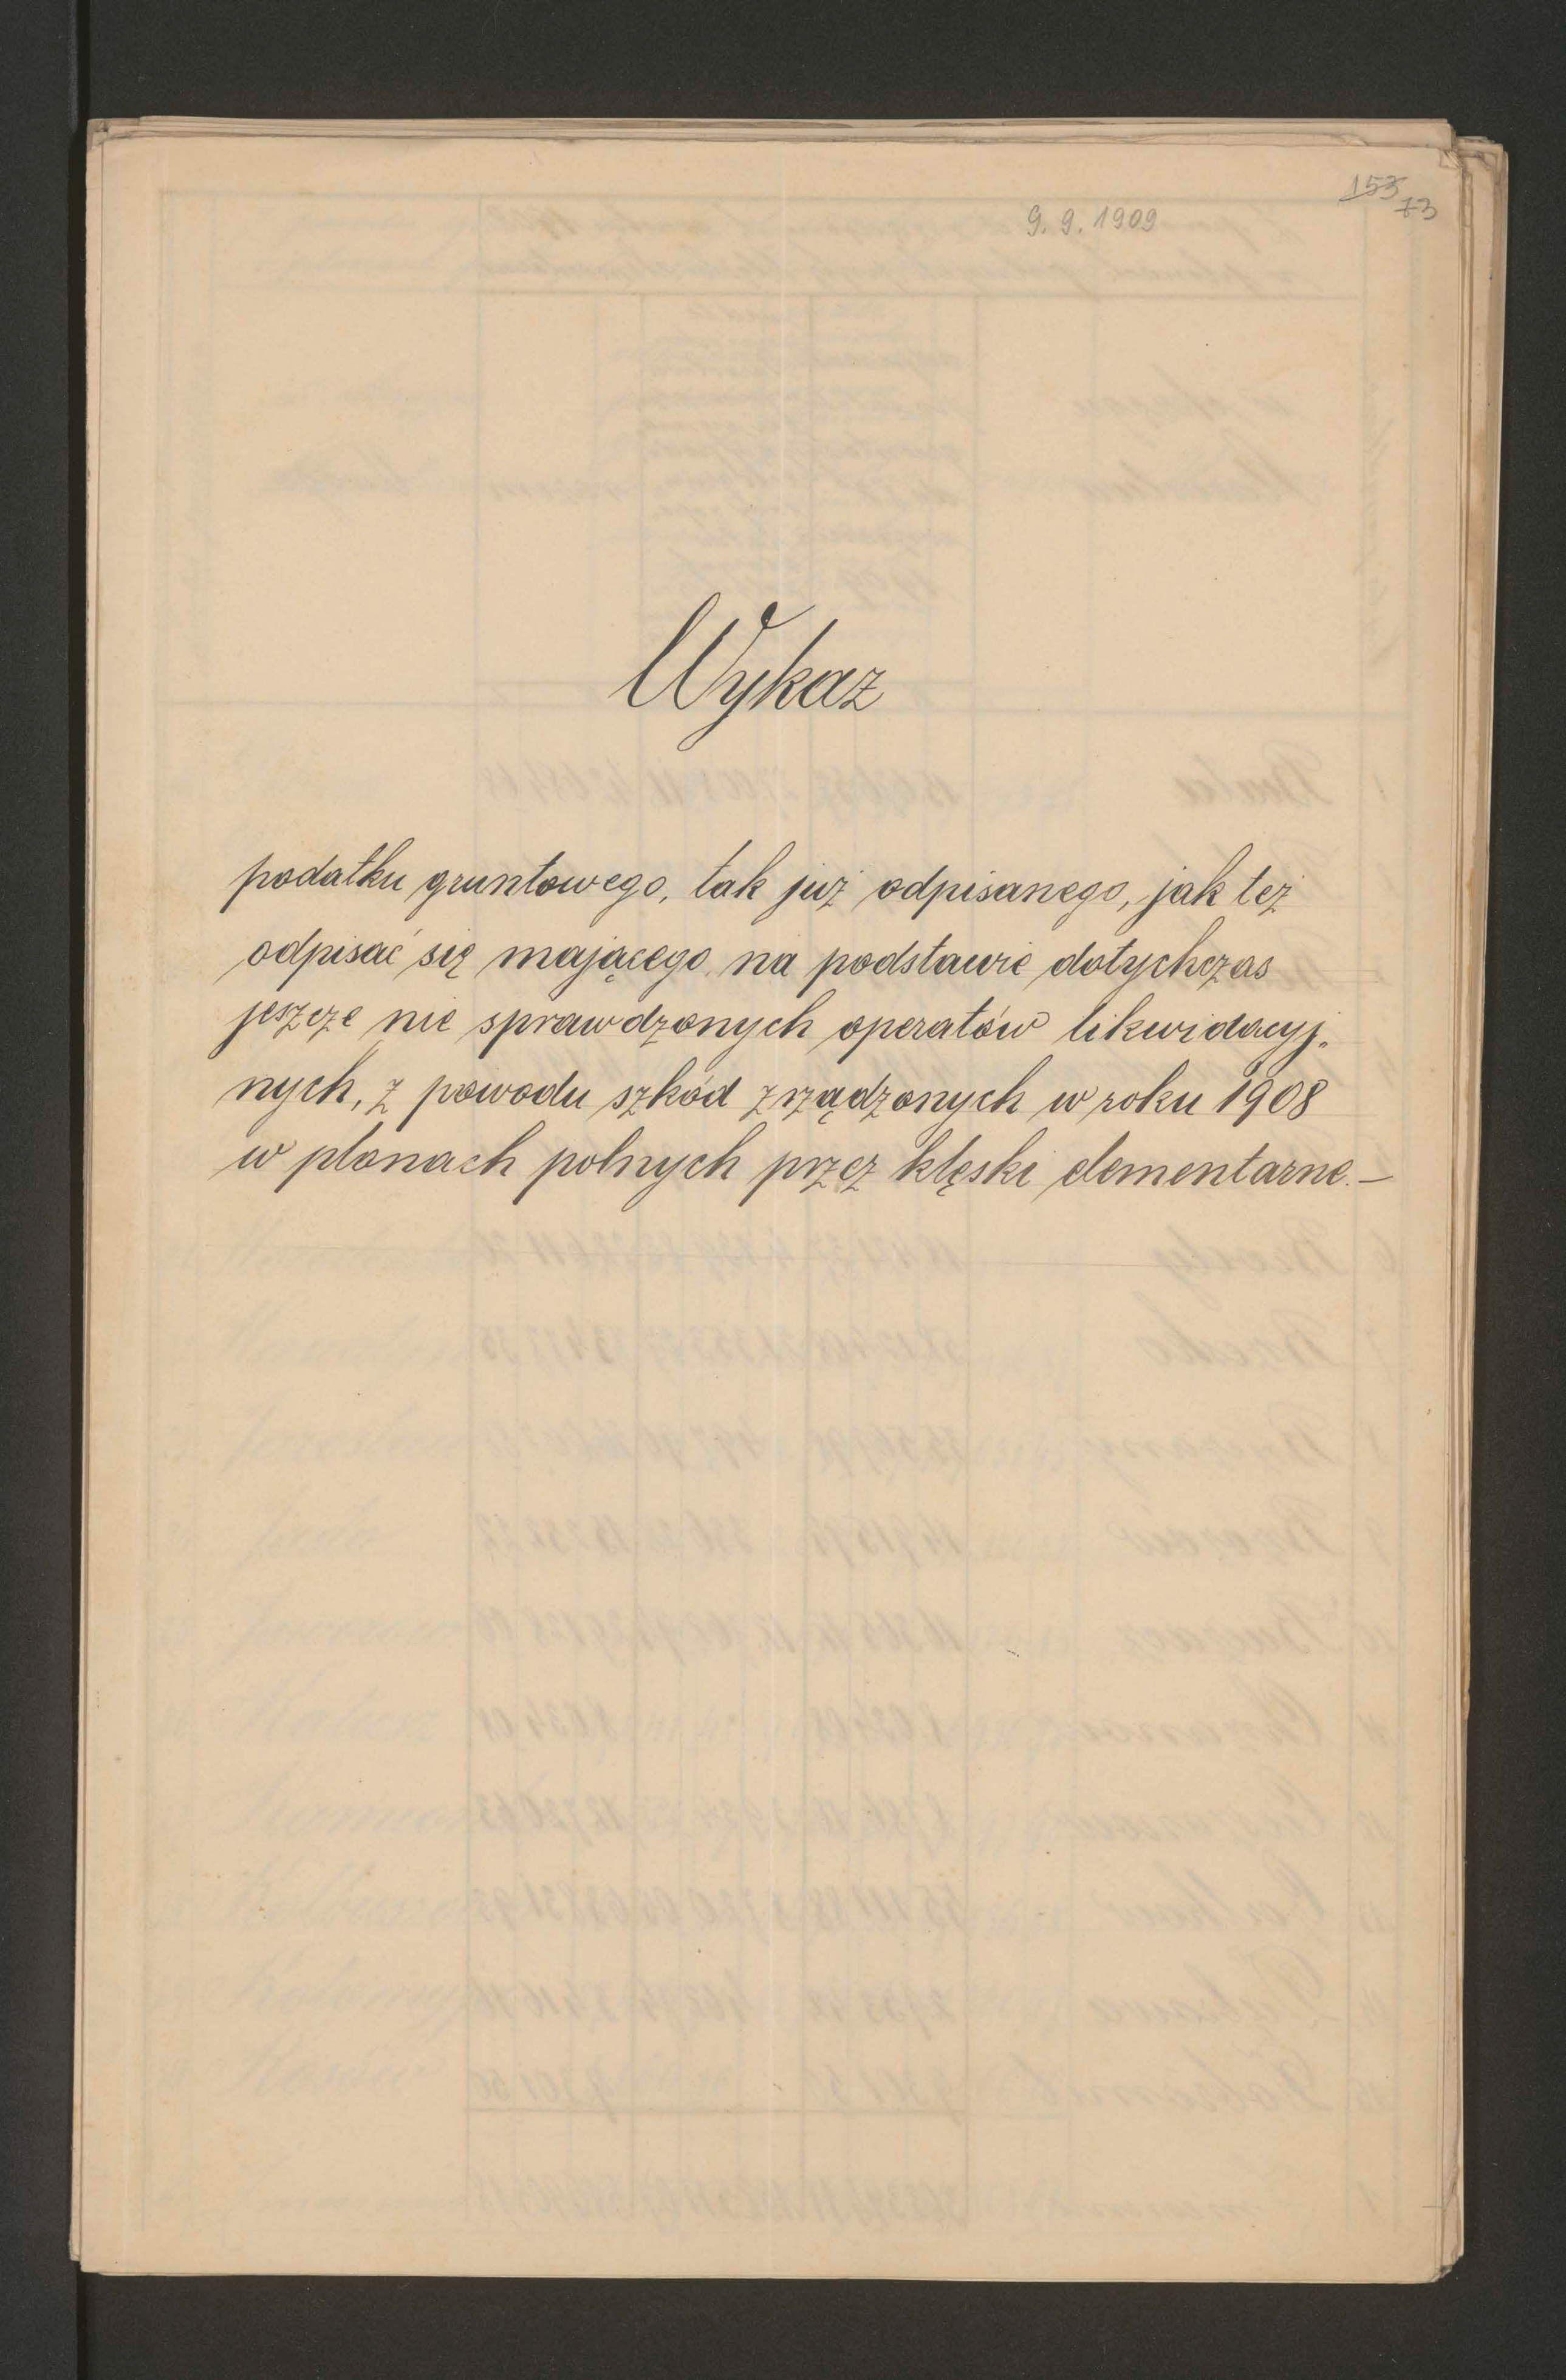 153
73
9. 9. 1909
Wykaz
podatku gruntowego, tak już odpisanego, jak też
odpisać się mającego na podstawie dotychczas
jeszcze nie sprawdzonych operatów likwidacyj„
nych, z powodu szkód zrządzonych w roku 1908
w plonach polnych przez klęski elementarne.—